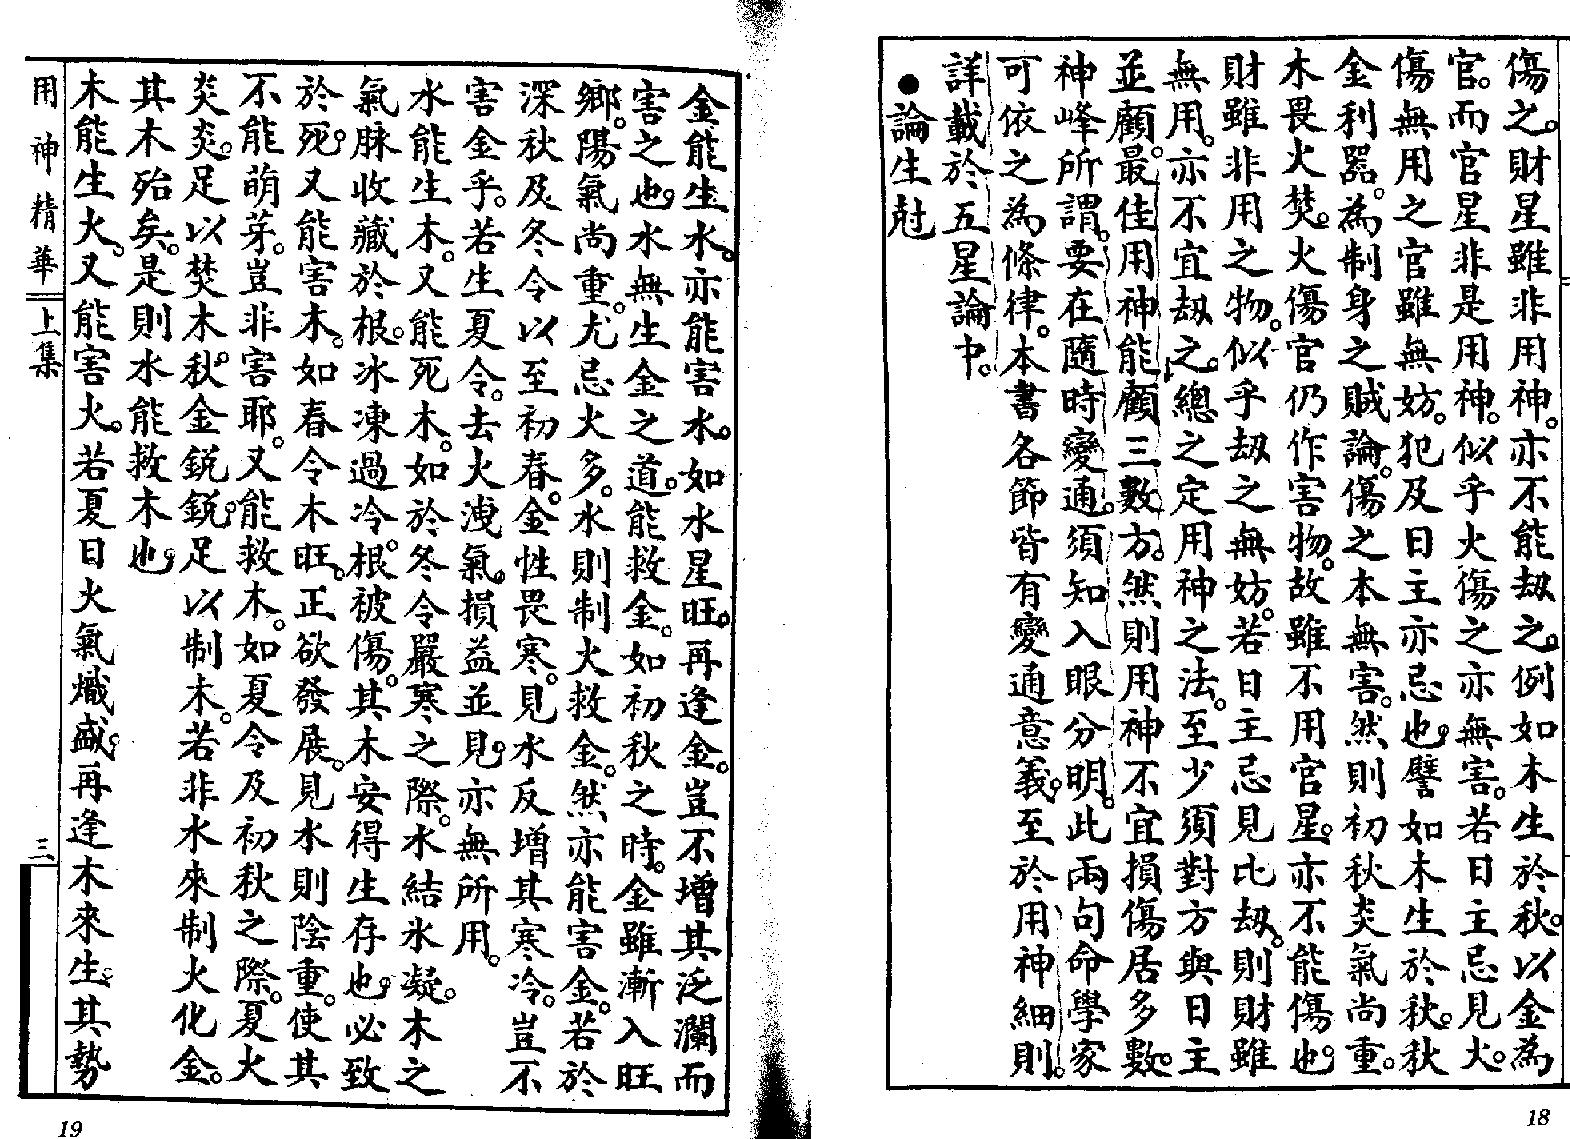 傷之。財星雖非用神。亦不能刼之。例如木生於秋。以金為
官。而官星非是用神。似乎火傷之亦無害。若日主忌見火。
傷無用之官雖無妨。犯及日主亦忌也。譬如木生於秋。秋
金利器。為制身之賊論。傷之本無害。然則初秋炎氣尚重。
木畏火焚。火傷官仍作害物。故雖不用官星。亦不能傷也。
財雖非用之物。似乎刼之無妨。若日主忌見比刼。則財雖
無用。亦不宜刼之。總之定用神之法。至少須對方與日主
並顧。最佳用神能顧三數方。然則用神不宜損傷居多數。
神峰所謂。要在隨時變通。須知入眼分明。此兩句命學家
可依之為條律。本書各節皆有變通意義。至於用神細則。
詳載於五星論中。
●論生尅
18
金能生水。亦能害水。如水星旺。再逢金。豈不增其泛瀾而
害之也。水無生金之道。能救金。如初秋之時。金雖漸入旺
鄉。陽氣尚重。尤忌火多。水則制火救金。然亦能害金。若於
深秋及冬令以至初春。金性畏寒。見水反增其寒冷。豈不
害金乎。若生夏令。去火洩氣。損益並見。亦無所用。
水能生木。又能死木。如於冬令嚴寒之際。水結氷凝。木之
氣脉收藏於根。冰凍過冷。根被傷。其木安得生存也。必致
於死。又能害木。如春令木旺。正欲發展。見水則陰重。使其
不能萌芽。豈非害耶。又能救木。如夏令及初秋之際。夏火
炎炎。足以焚木。秋金銳銳。足以制木。若非水來制火化金。
其木殆矣。是則水能救木也
木能生火。又能害火。若夏日火氣熾盛。再逢木來生。其勢
用神精華 上集
三
19